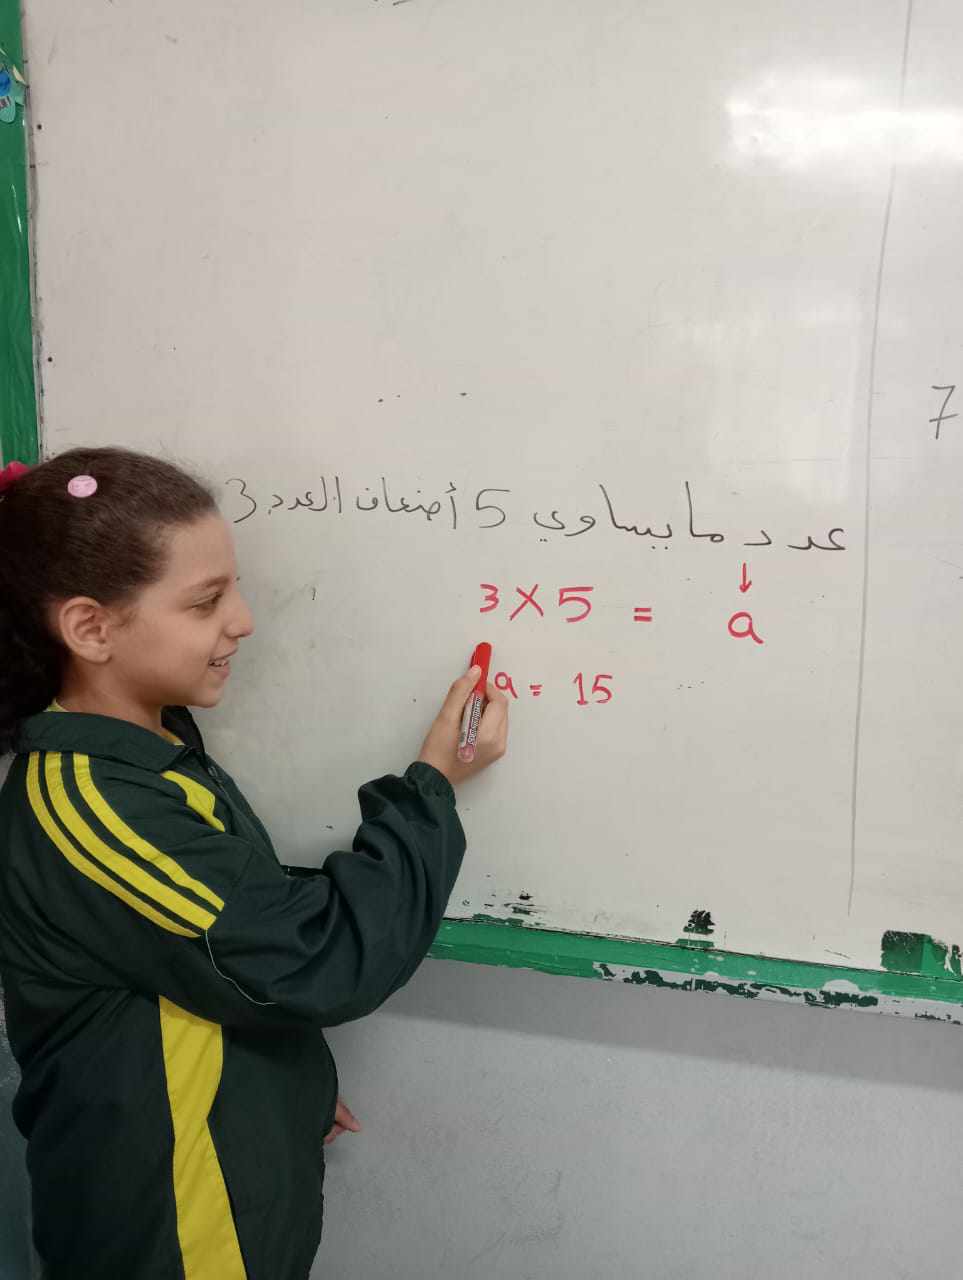 عدد ما يساوي 5 أضعاف العدد 3
3 × 5 = a
a = 15
7